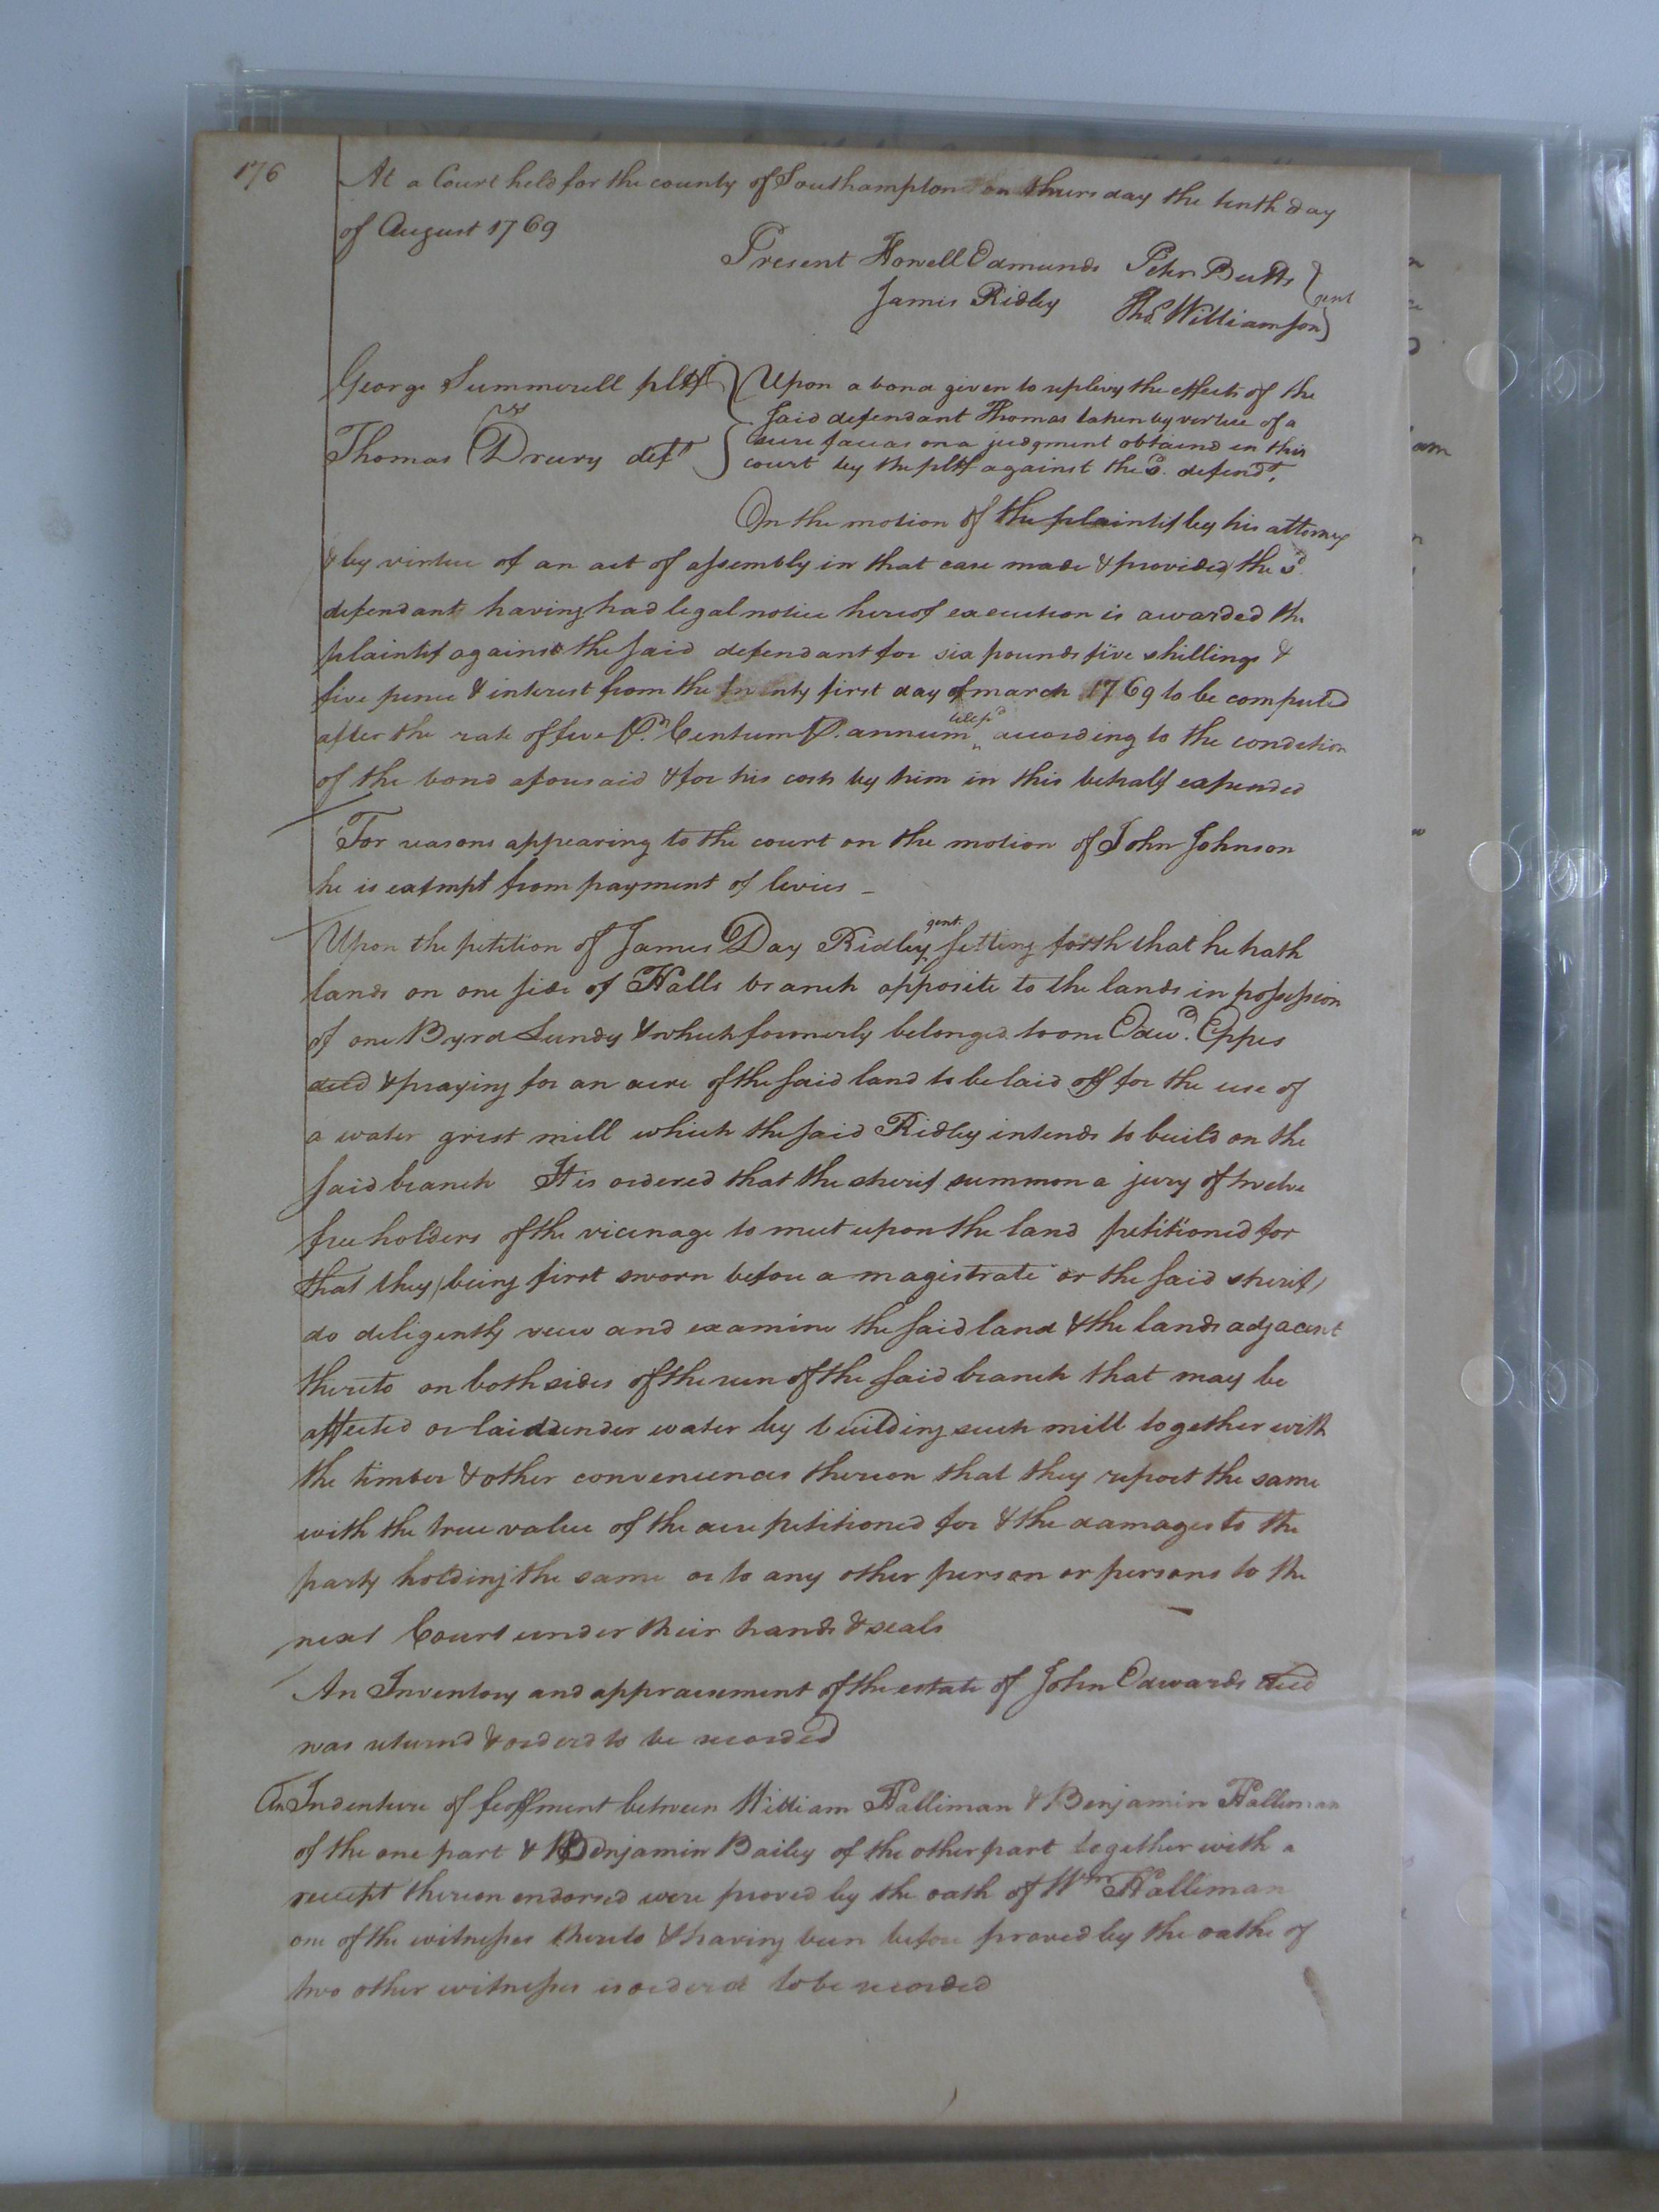 176
At a Court held for the county of Southampton on thursday the tenth day
of August 1769
Present Howell Edmunds Peter Butts
James Ridley Tho.s Williamson gent
George Summerell pltf Upon a bond given to replevy the effects of the
vs said defendant Thomas taken by vertue of a
Thomas Drury deft fieri facias on a judgment obtaind in this
court by the pltf against the sd. defendt.
On the motion of the plaintif by his attorney
& by virtue of an act of assembly in that case made & provided the sd
defendant having had legal notice hereof execution is awarded the
plaintif against the said defendant for six pounds five shillings &
five pence & interest from the twenty first day of march 1769 to be computed
after the rate of five Pr. Centum P. annum according to the condition
of the bond aforesaid & for his costs by him in this behalf expended
For reasons appearing to the court on the motion of John Johnson
he is exempt from payment of levies _
Upon the petition of James Day Ridley gent. setting forth that he hath
lands on one side of Halls branch opposite to the lands in possession
of one Byrd Lundy & which formerly belonged to one Edwd. Eppes
decd & praying for an acre of the said land to be laid off for the use of
a water grist mill which the said Ridley intends to build on the
said branch It is ordered that the sherif summon a jury of twelve
free holders of the vicinage to meet upon the land petitioned for
that they (being first sworn before a magistrate or the said sherif)
do deligently view and examine the said land & the lands adjacent
thereto on both sides of the run of the said branch that may be
affected or laid under water by building such mill together with
the timber & other conveniences thereon that they report the same
with the true value of the acre petitioned for & the damages to the
party holding the same or to any other person or persons to the
next Court under their hands & seals
An Inventory and appraisement of the estate of John Edwards decd
was returnd & orderd to be recorded
An Indenture of feoffment between William Halliman & Benjamin Halliman
of the one part & Benjamin Bailey of the other part together with a
receipt thereon endorsed were proved by the oath of Wm Halliman
one of the witnesses thereto & having been before proved by the oaths of
two other witnesses is orderd to be recorded